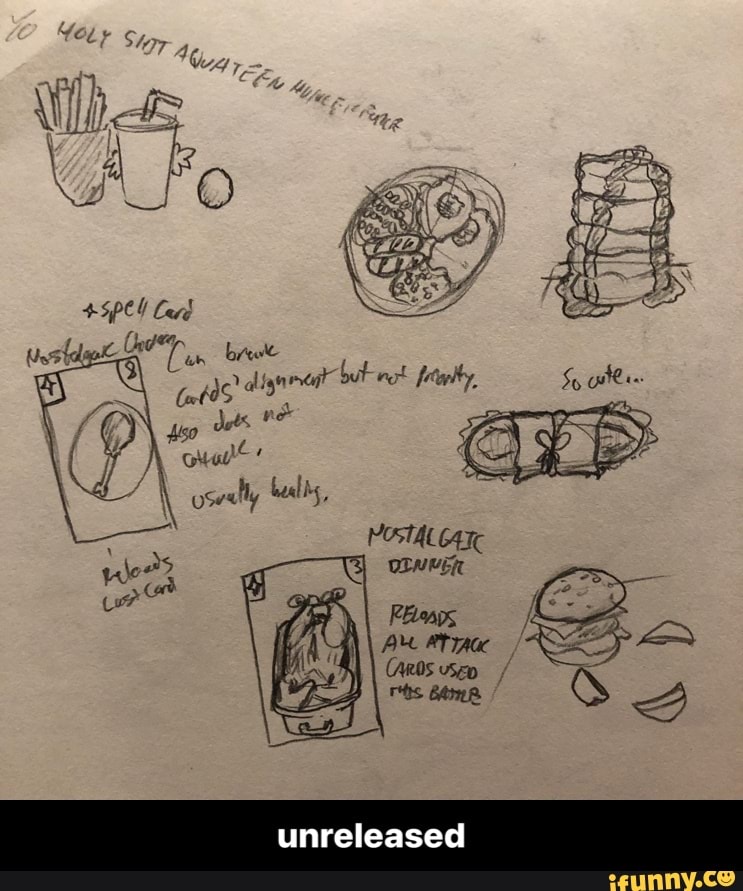 Yo HOLY SHIT AQUATEEN HUNGER FORCE
+ spell Card
Nostalgaic Chicken
4
8
Can break
Cards' alignment but not Priority.
Also does not
attack.
Usually healing.
So cute...
Reloads
Last Card
NOSTALGAIC
DINNER
4
3
RELOADS
ALL ATTACK
CARDS USED
THIS BATTLE
unreleased
ifunny.co